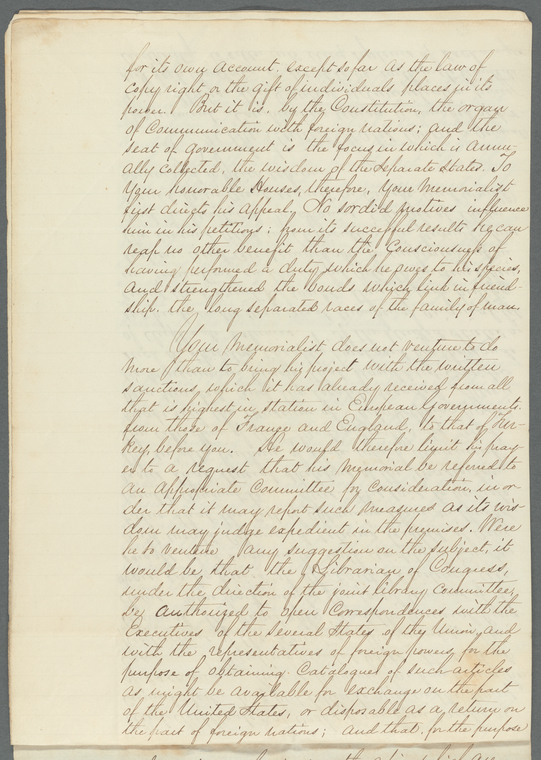 for its own account, except so far as the law of
copy right or the gift of individuals places in its
power. But it is, by the Constitution, the organ
of Communication with foreign nations; and the
seat of government is the focus in which is annu-
ally collected, the wisdom of the separate States. To
Your honorable Houses, therefore, Your Memorialist
first directs his appeal. No sordid motives influence
him in his petitions; from its successful results he can
reap no other benefit than the Consciousness of
having performed a duty which he owes to his species,
and strengthened the bonds which link in friend-
ship, the long separated races of the family of man.
Your Memorialist does not venture to do
more than to bring his project with the written
sanctions, which it has already received from all
that is highest in station in European Governments.
from those of France and England, to that of Tur-
key, before you. He would therefore limit his pray-
er to a request that his Memorial be referred to
an appropriate Committee for consideration, in or-
der that it may report such measures as its wis-
dom may judge expedient in the premises. Were
he to venture any suggestion on the subject, it
would be, that the Librarian of Congress,
under the direction of the joint library Committee,
be authorized to open Correspondences with the
Executives of the several States of the Union, and
with the representatives of foreign powers, for the
purpose of obtaining Catalogues of such articles
as might be available for exchange on the part
of the United States, or disposable as a return on
the part of foreign nations; and that, for the purpose